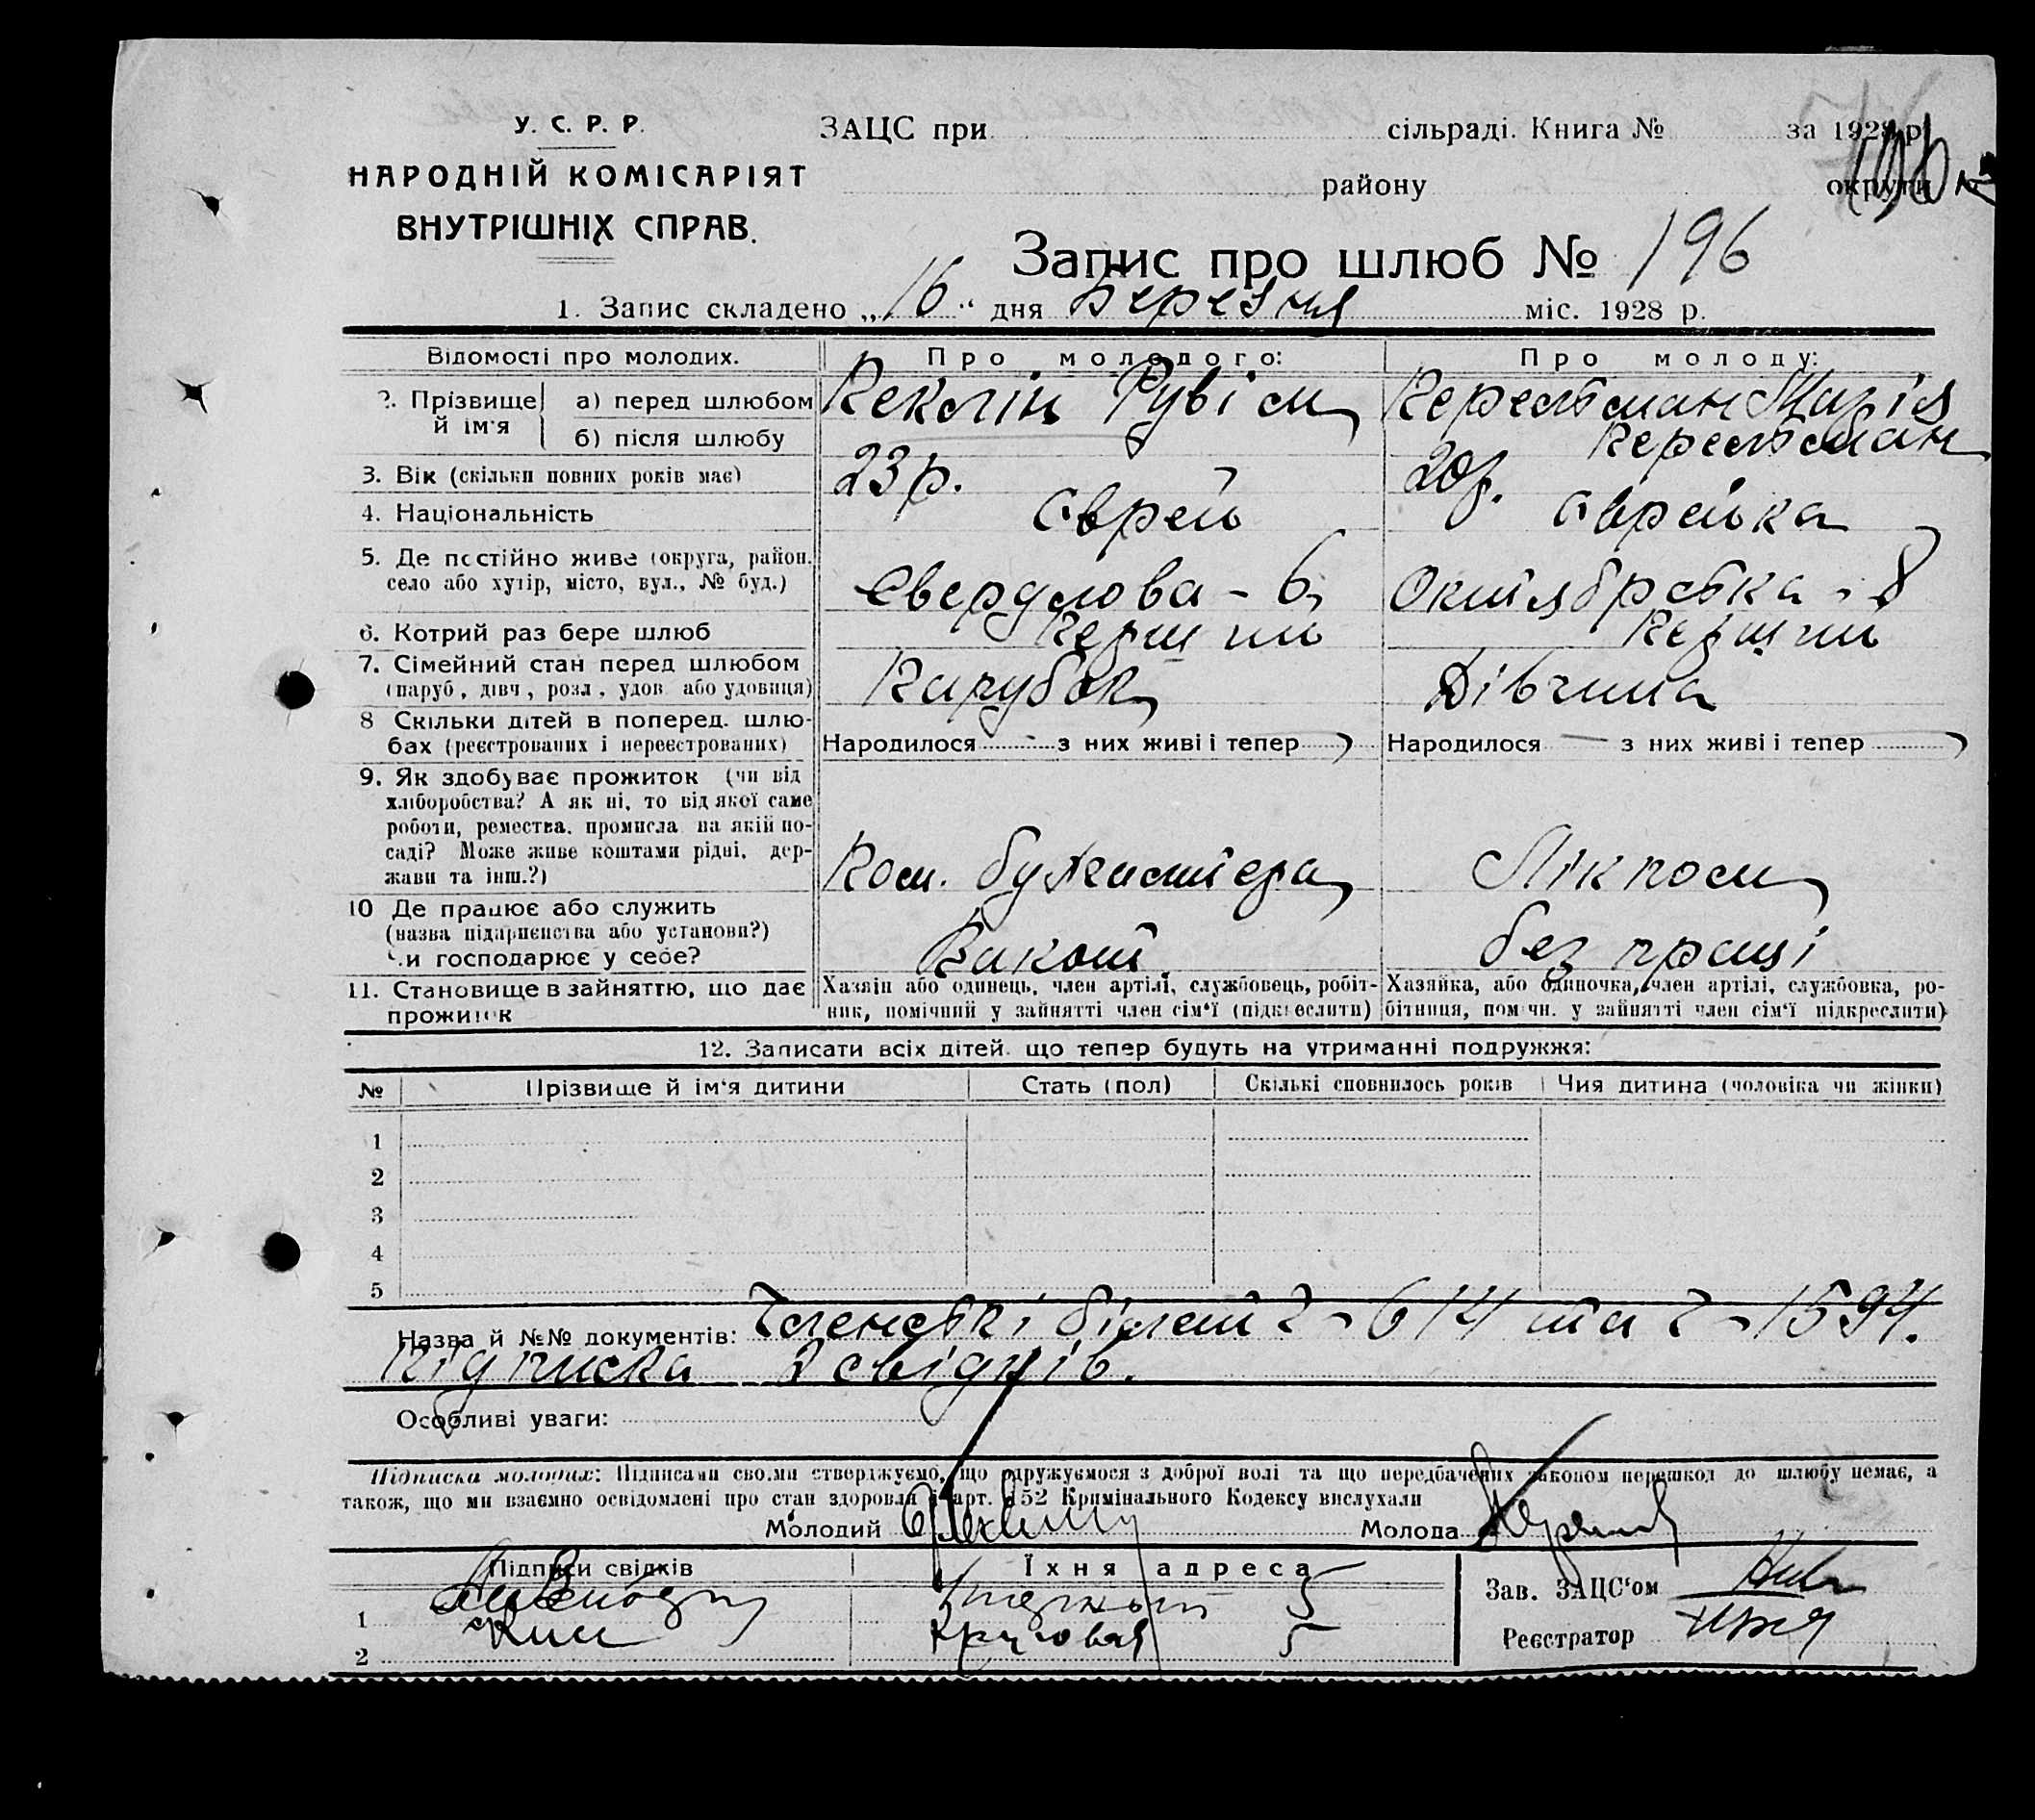 У. С. Р. Р.
НАРОДНІЙ КОМІСАРІЯТ
ВНУТРІШНІХ СПРАВ.
ЗАЦС при сільраді. Книга № за 1928 р.
району округи
Запис про шлюб № 196
1. Запис складено „16“ дня Березня міс. 1928 р.
Відомості про молодих. Про молодого: Про молоду:
2. Прізвище й ім'я
а) перед шлюбом Рувім Перельман Марія
б) після шлюбу Перельман
3. Вік (скільки повних років має) 23 р. 20 р.
4. Національність Єврей Єврейка
5. Де постійно живе (округа, район. село або хутір, місто, вул., № буд.) Свердлова - 6 Октябрська - 8
6. Котрий раз бере шлюб Перший Перший
7. Сімейний стан перед шлюбом Парубок Дівчина
(паруб, дівч, розл, удов або удовиця)
8 Скільки дітей в поперед. шлю-
бах (реєстрованих і нереєстрованих) Народилося з них живі і тепер Народилося з них живі і тепер
9. Як здобуває прожиток (чи від
хліборобства? А як ні, то від якої саме
роботи, ремества, промисла на якій по-
саді? Може живе коштами рідні, дер-
жави та інш.?) Пом. бухгалтера Лікпом
10 Де працює або служить
(назва підприємства або установи?)
чи господарює у себе? без праці
11. Становище в зайняттю, що дає
прожиток
Хазяїн або одинець, член артілі, службовець, робіт-
ник, помічний у зайнятті член сім'ї (підкреслити)
Хазяйка, або одиночка, член артілі, службовка, ро-
бітниця, помічн. у зайнятті член сім'ї підкреслити)
12. Записати всіх дітей, що тепер будуть на утриманні подружжя:
№ Прізвище й ім'я дитини Стать (пол) Скількі сповнилось років Чия дитина (чоловіка чи жінки)
1
2
3
4
5
Назва й №№ документів: Членські білети 614 та 1594.
Підписка 2 свідків.
Особливі уваги:
Підписка молодих: Підписами своїми стверджуємо, що одружуємося з доброї волі та що передбачених законом перешкод до шлюбу немає, а
також, що ми взаємно освідомлені про стан здоровля і арт. 152 Кримінального Кодексу вислухали
Молодий Молода
Підписи свідків Їхня адреса
1 5
2 Кругова 5
Зав. ЗАЦС'ом
Реєстратор